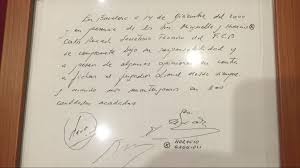 En Barcelona, a 14 de Diciembre del 2000
y en presencia de los Srs. Minguella y Horacio
Carles Rexach Secretario Técnico del F.C.B
se compromete bajo su responsabilidad y
a pesar de algunas opiniones en contra
a fichar al jugador Lionel Messi siempre
y cuando nos mantengamos en las
cantidades acordadas
HORACIO
GAGGIOLI